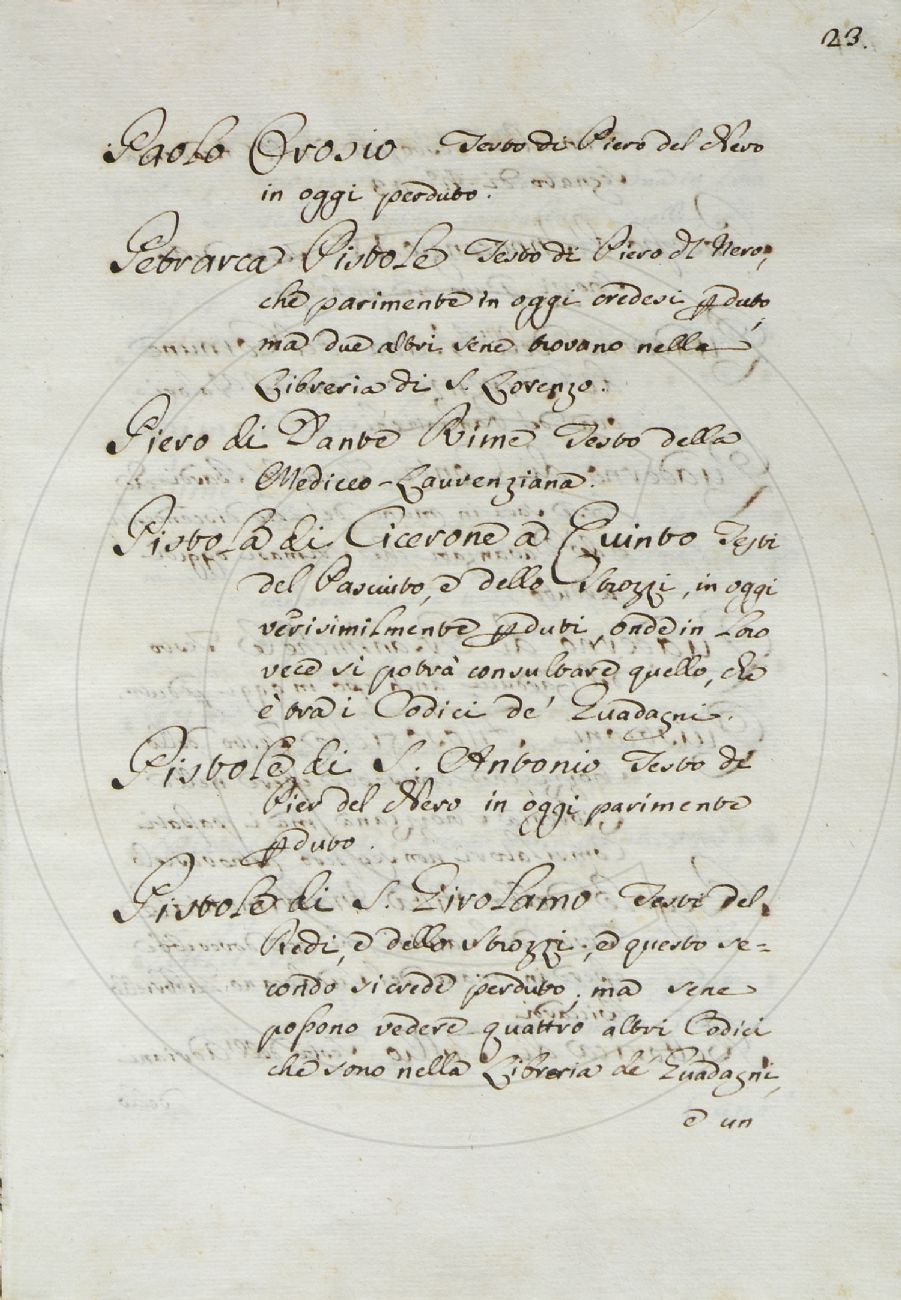 23.
Paolo Orosio Testo di Piero del Nero
in oggi perduto.
Petrarca Pistole Testo di Piero dl Nero,
che parimente in oggi credesi pduto,
ma due altri sene trovano nella
Libreria di S. Lorenzo.
Piero di Dante Rime Testo della
Mediceo-Laurenziana.
Pistola di Cicerone a Quinto Testi
del Pasciuto, e dello Strozzi, in oggi
verisimilmente pduti, onde in loro
vece si potrà consultare quello, che
è tra i Codici de' Guadagni.
Pistole di S. Antonio Testo di
Pier del Nero in oggi parimente
pduto.
Pistole di S. Girolamo Testi del
Redi, e dello Strozzi, e questo se=
condo si crede perduto; ma sene
possono vedere quattro altri Codici
che sono nella Libreria de' Guadagni,
e un